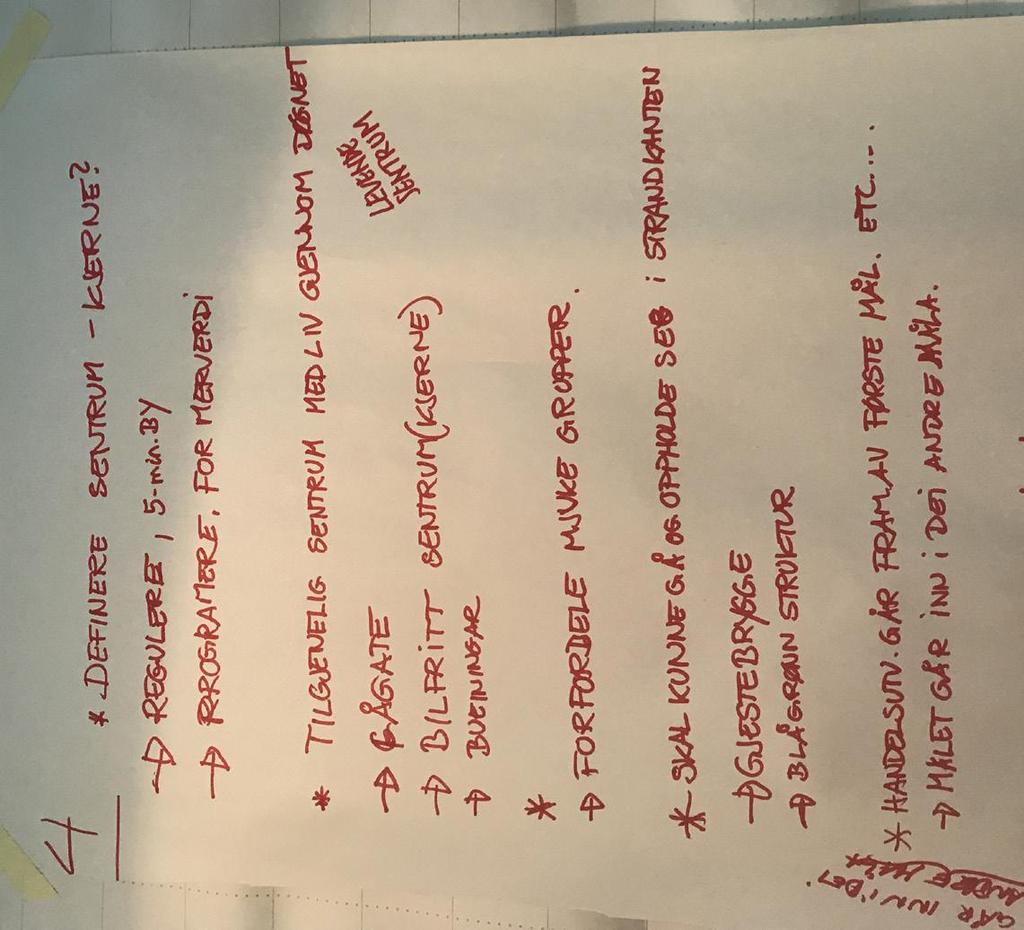 4
* DEFINERE SENTRUM - KJERNE?
→ REGULERE, 5-min.BY
→ PROGRAMERE, FOR MERVERDI
* TILGJENELIG SENTRUM MED LIV GJENNOM DØGNET
LEVENDE
SENTRUM
→ GÅGATE
→ BILFRITT SENTRUM(KJERNE)
→ BUEININGAR
*
→ FORFORDELE MJUKE GRUPPER.
* SKAL KUNNE GÅ OG OPPHOLDE SEG I STRANDKANTEN
→ GJESTEBRYGGE
→ BLÅGRØNN STRUKTUR
* HANDELSUTV. GÅR FRAM AV FØRSTE MÅL. ETC....
→ MÅLET GÅR INN I DEI ANDRE MÅLA.
GÅR INN I DEI
ANDRE